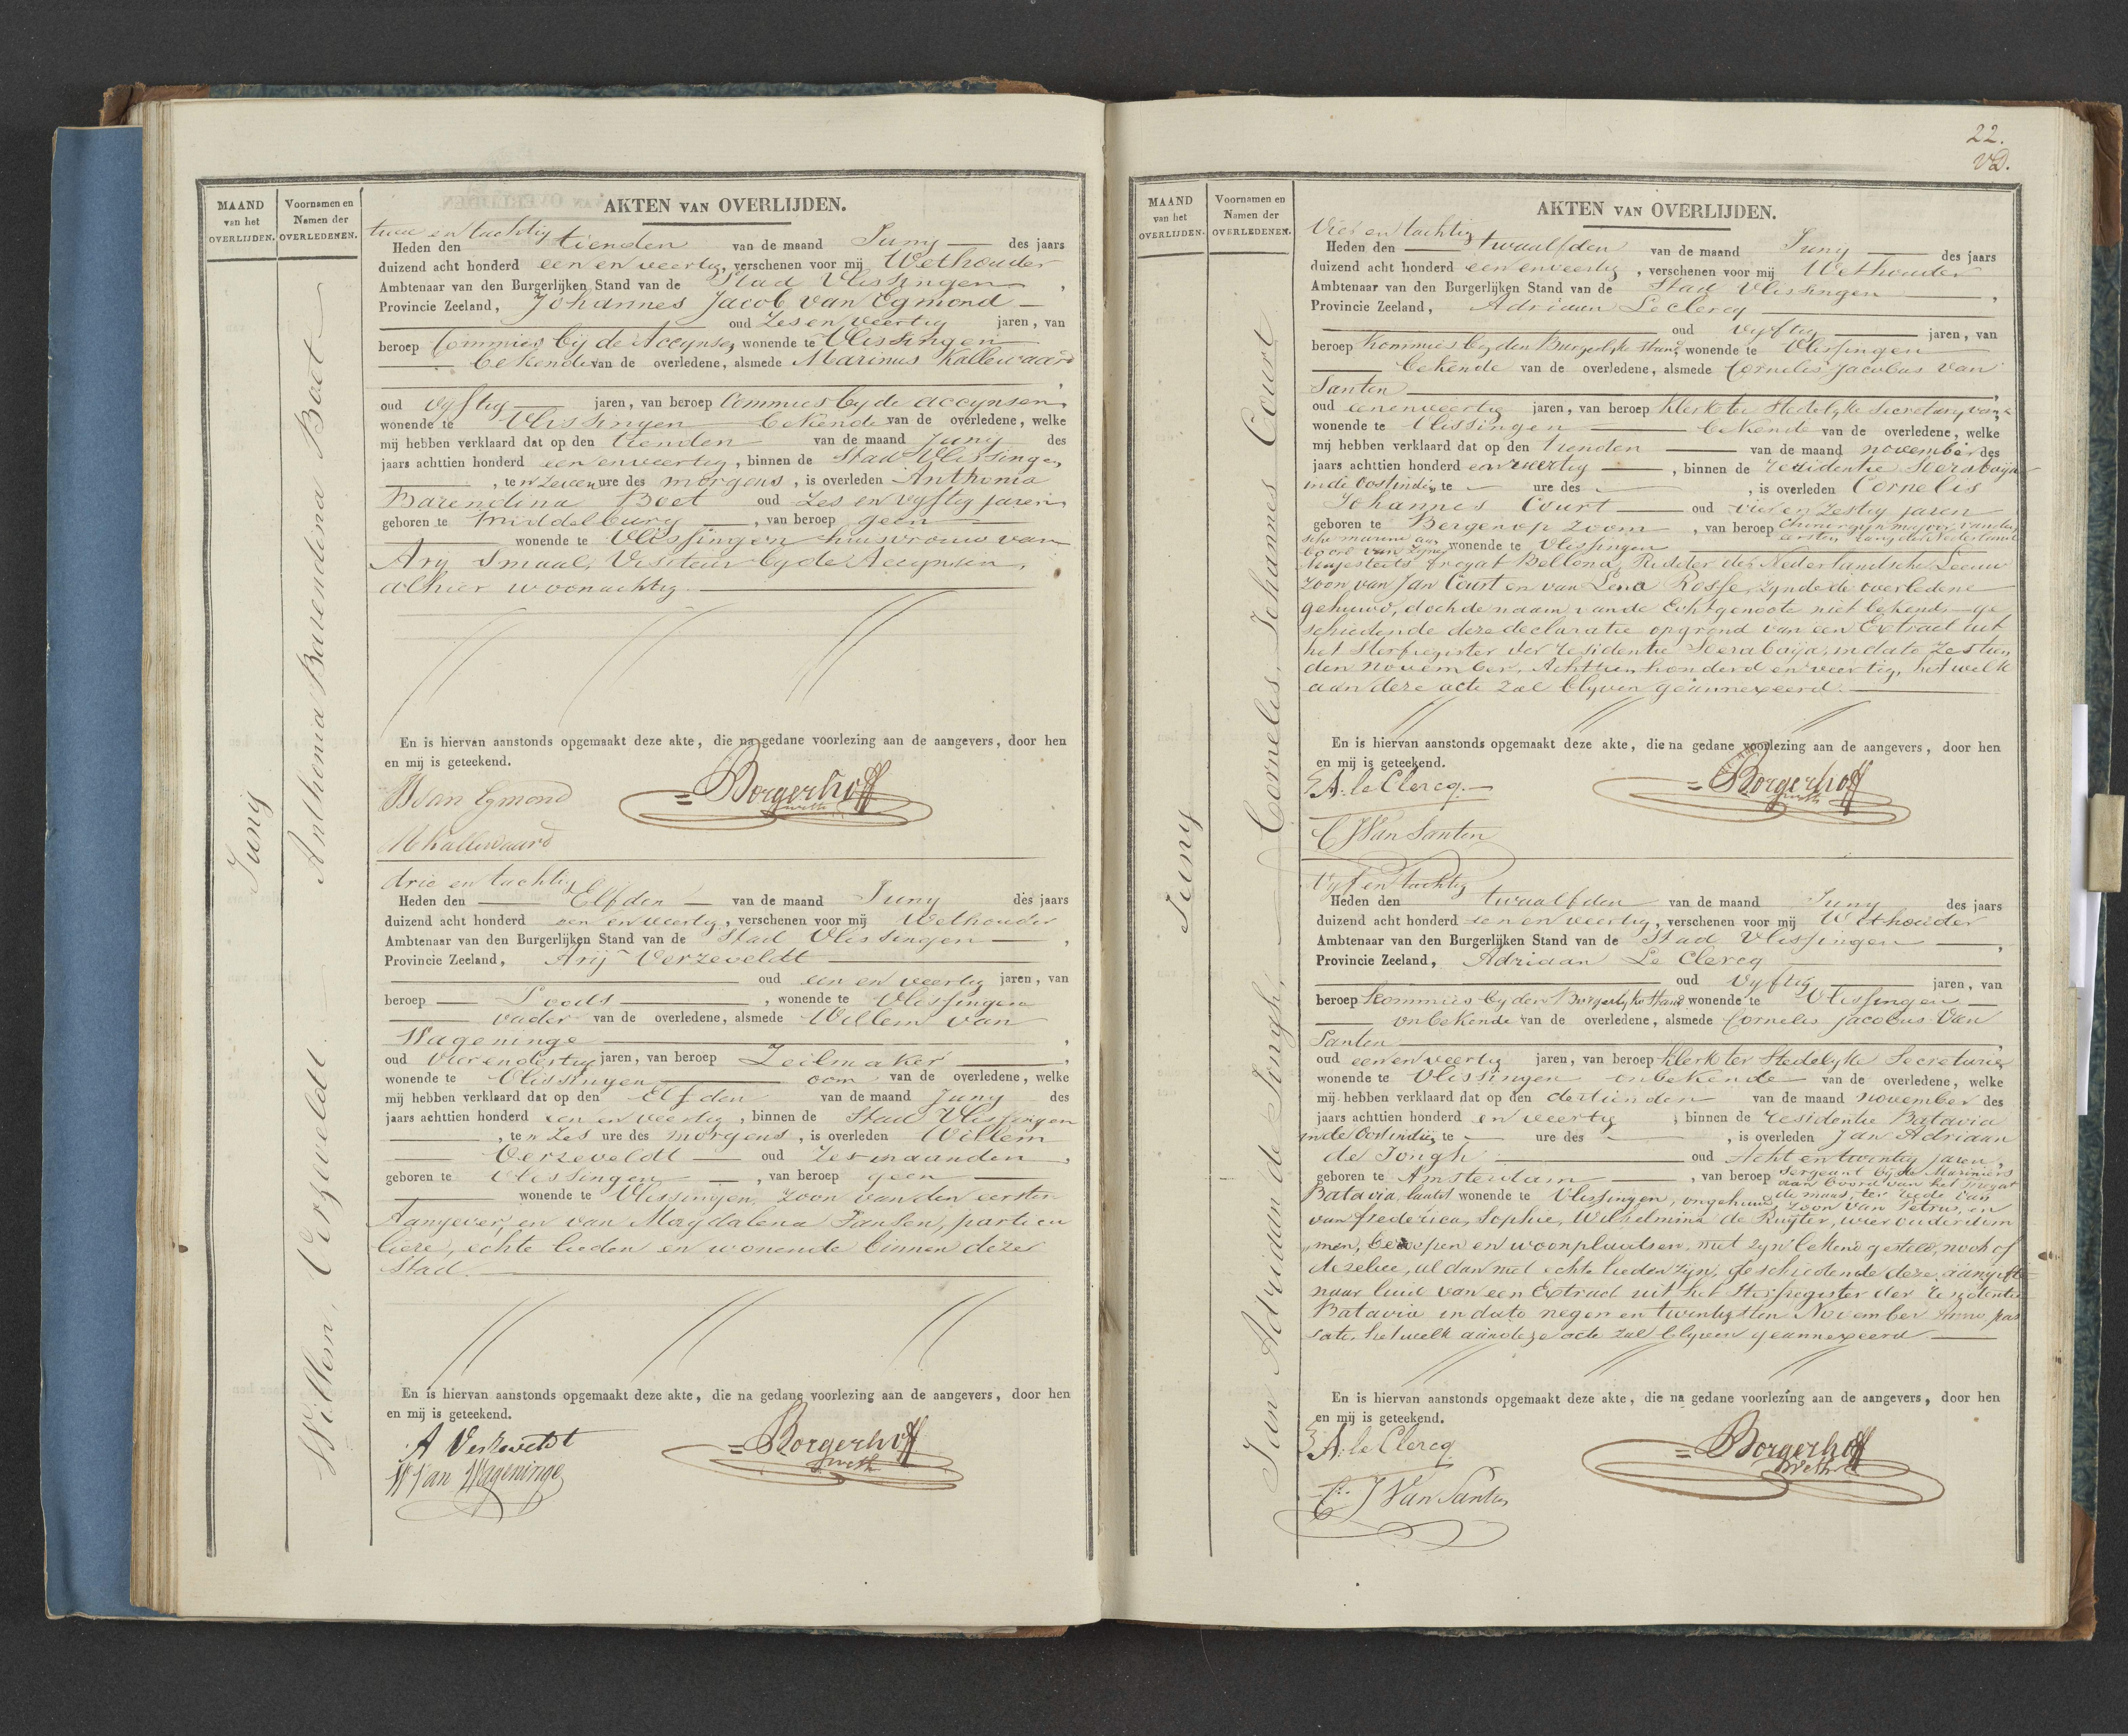 MAAND
van het
OVERLIJDEN.
Voornamen en
Namen der
OVERLEDENEN.
Juny
Anthonia Barendina Boet
Willem Verzeveldt
AKTEN VAN OVERLIJDEN.
twee en tachtig
Heden den tienden van de maand Juny des jaars
duizend acht honderd een en veertig, verschenen voor mij Wethouder
Ambtenaar van den Burgerlijken Stand van de Stad Vlissingen,
Provincie Zeeland, Johannes Jacob van Egmond
oud zes en veertig jaren, van
beroep Commies bij de Accynsen, wonende te Vlissingen
bekende van de overledene, alsmede Marinus Kallewaard
,
oud vyftig jaren, van beroep Commies by de accynsen,
wonende te Vlissingen bekende van de overledene, welke
mij hebben verklaard dat op den tienden van de maand Juny des
jaars achttien honderd een en veertig, binnen de Stad Vlissingen
, ten zeven ure des morgens, is overleden Anthonia
Barendina Boet oud zes en vyftig jaren,
geboren te Middelburg, van beroep geen
wonende te Vlissingen huisvrouw van
Arij Smaal, Visiteur by de Accynsen,
alhier woonachtig.
En is hiervan aanstonds opgemaakt deze akte, die na gedane voorlezing aan de aangevers, door hen
en mij is geteekend.
van Egmond
Borgerhoff
weth
M Kallewaard
drie en tachtig
Heden den Elfden van de maand Juny des jaars
duizend acht honderd een en veertig, verschenen voor mij Wethouder
Ambtenaar van den Burgerlijken Stand van de Stad Vlissingen,
Provincie Zeeland, Arij Verzeveldt
oud een en veertig jaren, van
beroep Loods, wonende te Vlissingen
vader van de overledene, alsmede Willem van
Wageninge,
oud vier en dertig jaren, van beroep Zeilmaker,
wonende te Vlissingen oom van de overledene, welke
mij hebben verklaard dat op den Elfden van de maand Juny des
jaars achttien honderd een en veertig, binnen de Stad Vlissingen
, ten zes ure des morgens, is overleden Willem
Verzeveldt oud zes maanden,
geboren te Vlissingen, van beroep geen
wonende te Vlissingen, zoon van den eersten
Aangever, en van Magdalena Jansen, particu
liere, echte lieden en wonende binnen deze
Stad.
En is hiervan aanstonds opgemaakt deze akte, die na gedane voorlezing aan de aangevers, door hen
en mij is geteekend.
A Verzeveldt
Borgerhoff
weth
W van Wageninge
22.
VD.
MAAND
van het
OVERLIJDEN.
Voornamen en
Namen der
OVERLEDENEN.
Juny
Cornelis Johannes Court
Jan Adriaan de Jongh
AKTEN VAN OVERLIJDEN.
Vier en tachtig
Heden den twaalfden van de maand Juny des jaars
duizend acht honderd een en veertig, verschenen voor mij Wethouder
Ambtenaar van den Burgerlijken Stand van de Stad Vlissingen,
Provincie Zeeland, Adriaan Leclercq
oud vyftig jaren, van
beroep Kommies by den Burgerlyke stand, wonende te Vlissingen
bekende van de overledene, alsmede Cornelis Jacobus van
Santen,
oud een en veertig jaren, van beroep klerk ter Stedelyke Secretary
wonende te Vlissingen bekende van de overledene, welke
mij hebben verklaard dat op den tienden van de maand november des
jaars achttien honderd en veertig, binnen de residentie Soerabaija
in de Oostindien, te ure des, is overleden Cornelis
Johannes Court oud vier en zestig jaren
geboren te Bergen op Zoom, van beroep Chirurgyn majoor van den
eersten rang der Nederland
sche marine aan
boord van zyner wonende te Vlissingen
Majesteits fregat Bellona, Ridder der Nederlandsche Leeuw
zoon van Jan Court en van Lena Rosse, zynde de overledene
gehuwd, doch de naam van de Echtgenoote niet bekend, ge
schiedende deze declaratie op grond van een Extract uit
het Sterfregister der residentie Soerabaija, in dato zestien
den november, Achttienhonderd en veertig, hetwelk
aan deze acte zal blyven geannexeerd.
En is hiervan aanstonds opgemaakt deze akte, die na gedane voorlezing aan de aangevers, door hen
en mij is geteekend.
A. le Clercq.
Borgerhoff
weth
C J Van Santen
Vyf en tachtig
Heden den twaalfden van de maand Juny des jaars
duizend acht honderd een en veertig, verschenen voor mij Wethouder
Ambtenaar van den Burgerlijken Stand van de Stad Vlissingen,
Provincie Zeeland, Adriaan Le Clercq
oud vyftig jaren, van
beroep Kommies by den Burgerlyke Stand wonende te Vlissingen
onbekende van de overledene, alsmede Cornelis Jacobus Van
Santen,
oud een en veertig jaren, van beroep klerk ter Stedelyke Secretarie,
wonende te Vlissingen onbekende van de overledene, welke
mij hebben verklaard dat op den dertienden van de maand november des
jaars achttien honderd en veertig, binnen de residentie Batavia
in de Oostindien, te ure des, is overleden Jan Adriaan
de Jongh oud Acht en twintig jaren,
geboren te Amsterdam, van beroep Sergeant by de Mariniers
aan boord van het fregat
de maas, ter reede van
Batavia, laatst wonende te Vlissingen, ongehuwd, zoon van Petrus, en
van Frederica, Sophie, Wilhelmina de Ruyter, wier ouderdom
men, beroepen en woonplaatsen, niet zyn bekend gesteld, noch of
dezelve, al dan niet echte lieden zyn, geschiedende deze aangifte
naar luid van een Extract uit het Sterfregister der residentie
Batavia in dato negen en twintigsten November Anno pas
sato, hetwelk aan deze acte zal blyven geannexeerd
En is hiervan aanstonds opgemaakt deze akte, die na gedane voorlezing aan de aangevers, door hen
en mij is geteekend.
A. le Clercq
Borgerhoff
weth
C. J Van Santen